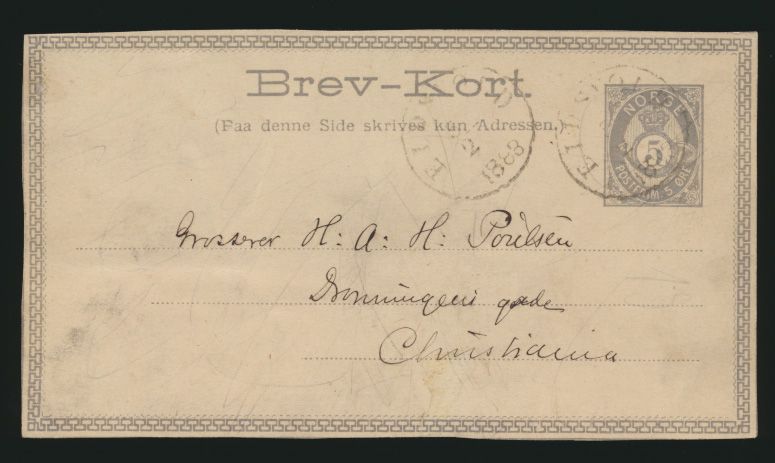 Brev-Kort.
(Faa denne Side skrives kun Adressen.)
EIDSVOLD
2
1888
EIDSVOLD
NORGE
5
POSTFRIM 5 ØRE
Grosserer H: A: H:
Dronningens gade
Christiania